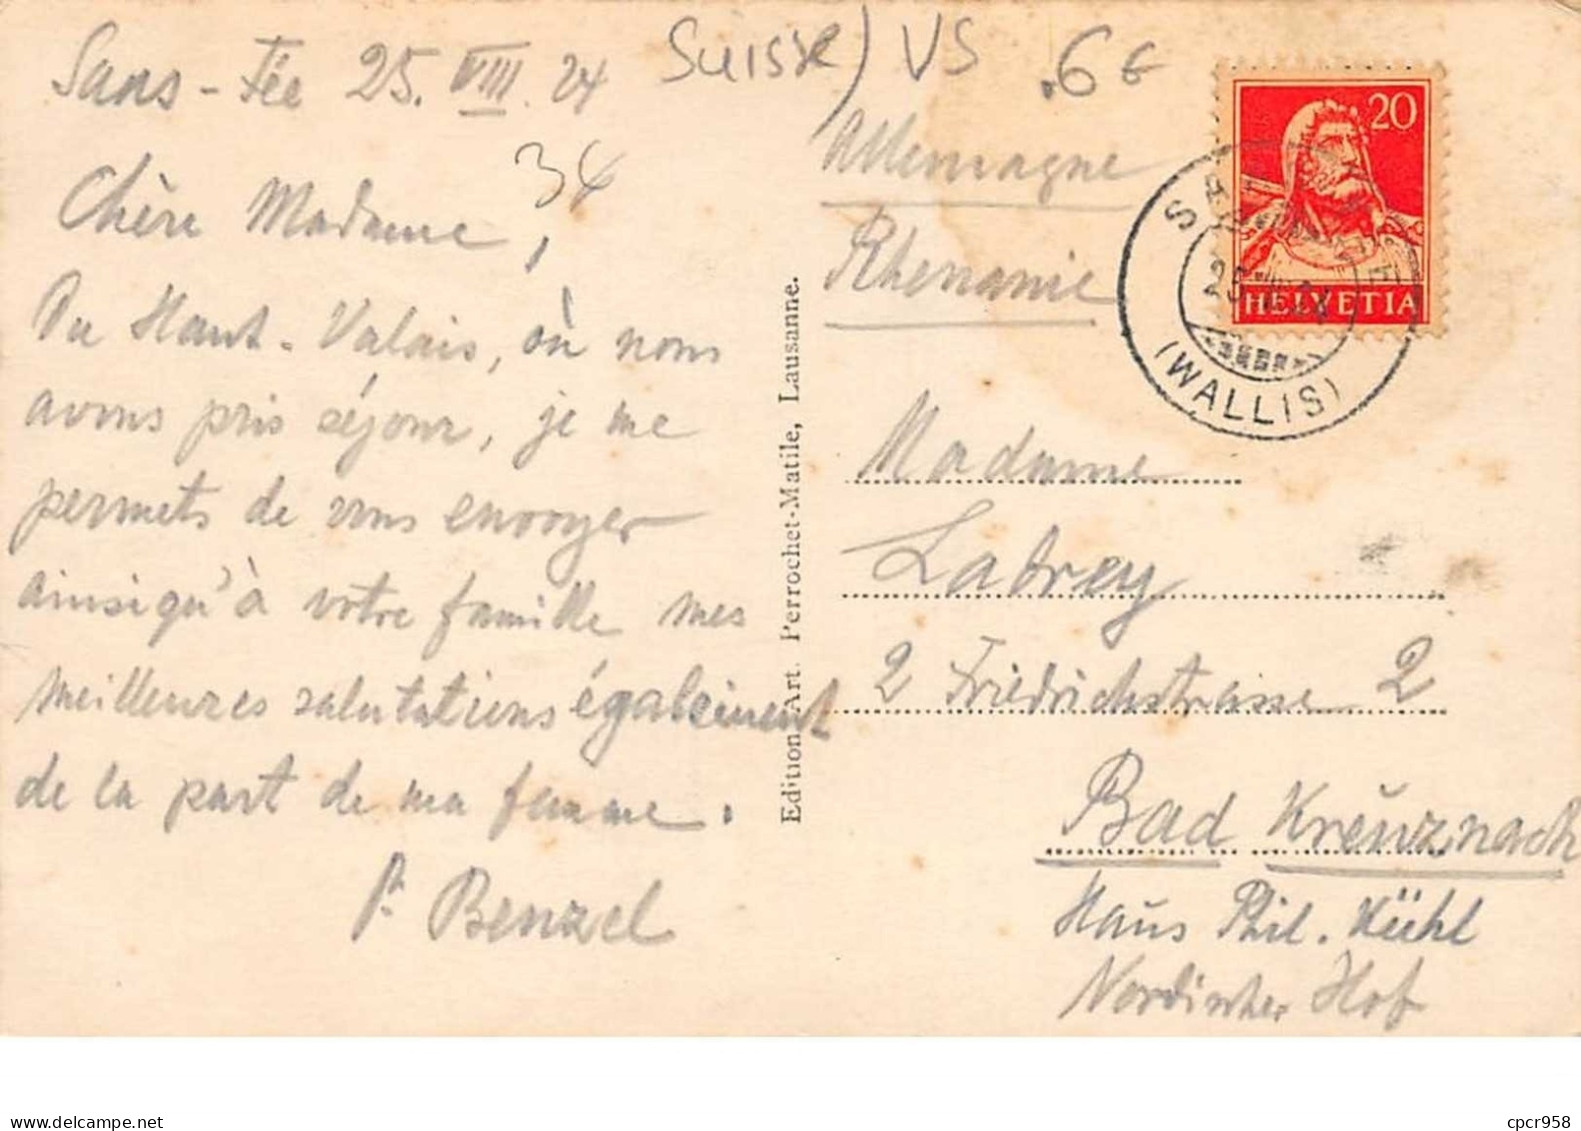 Saas-Fée 25. VIII. 24
Suisse) VS .6€
34
Chère Madame,
Du Haut-Valais, où nous
avons pris séjour, je me
permets de vous envoyer
ainsi qu'à votre famille mes
meilleures salutations également
de la part de ma femme.
P. Benzel
Edition Art. Perrochet-Matile, Lausanne.
Allemagne
Rhenanie
20
HELVETIA
(WALLIS)
Madame
Labrey
2 Friedrichstrasse 2
Bad Kreuznach
Haus Phil. Kühl
Nordischer Hof
cpcr958